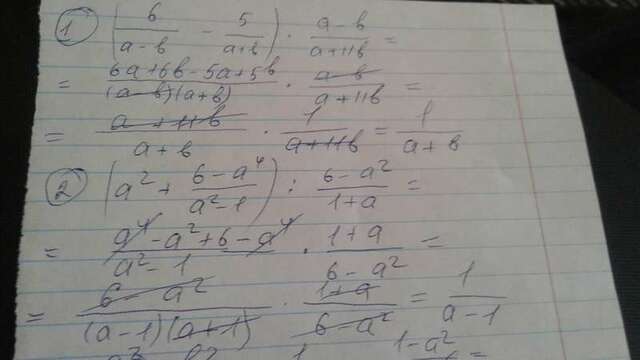 1) (6/(a-b) - 5/(a+b)) · (a-b)/(a+11b) =
= (6a+6b-5a+5b)/((a-b)(a+b)) · (a-b)/(a+11b) =
= (a+11b)/(a+b) · 1/(a+11b) = 1/(a+b)
2) (a² + (6-a⁴)/(a²-1)) : (6-a²)/(1+a) =
= (a⁴-a²+6-a⁴)/(a²-1) · (1+a)/(6-a²) =
= (6-a²)/((a-1)(a+1)) · (1+a)/(6-a²) = 1/(a-1)